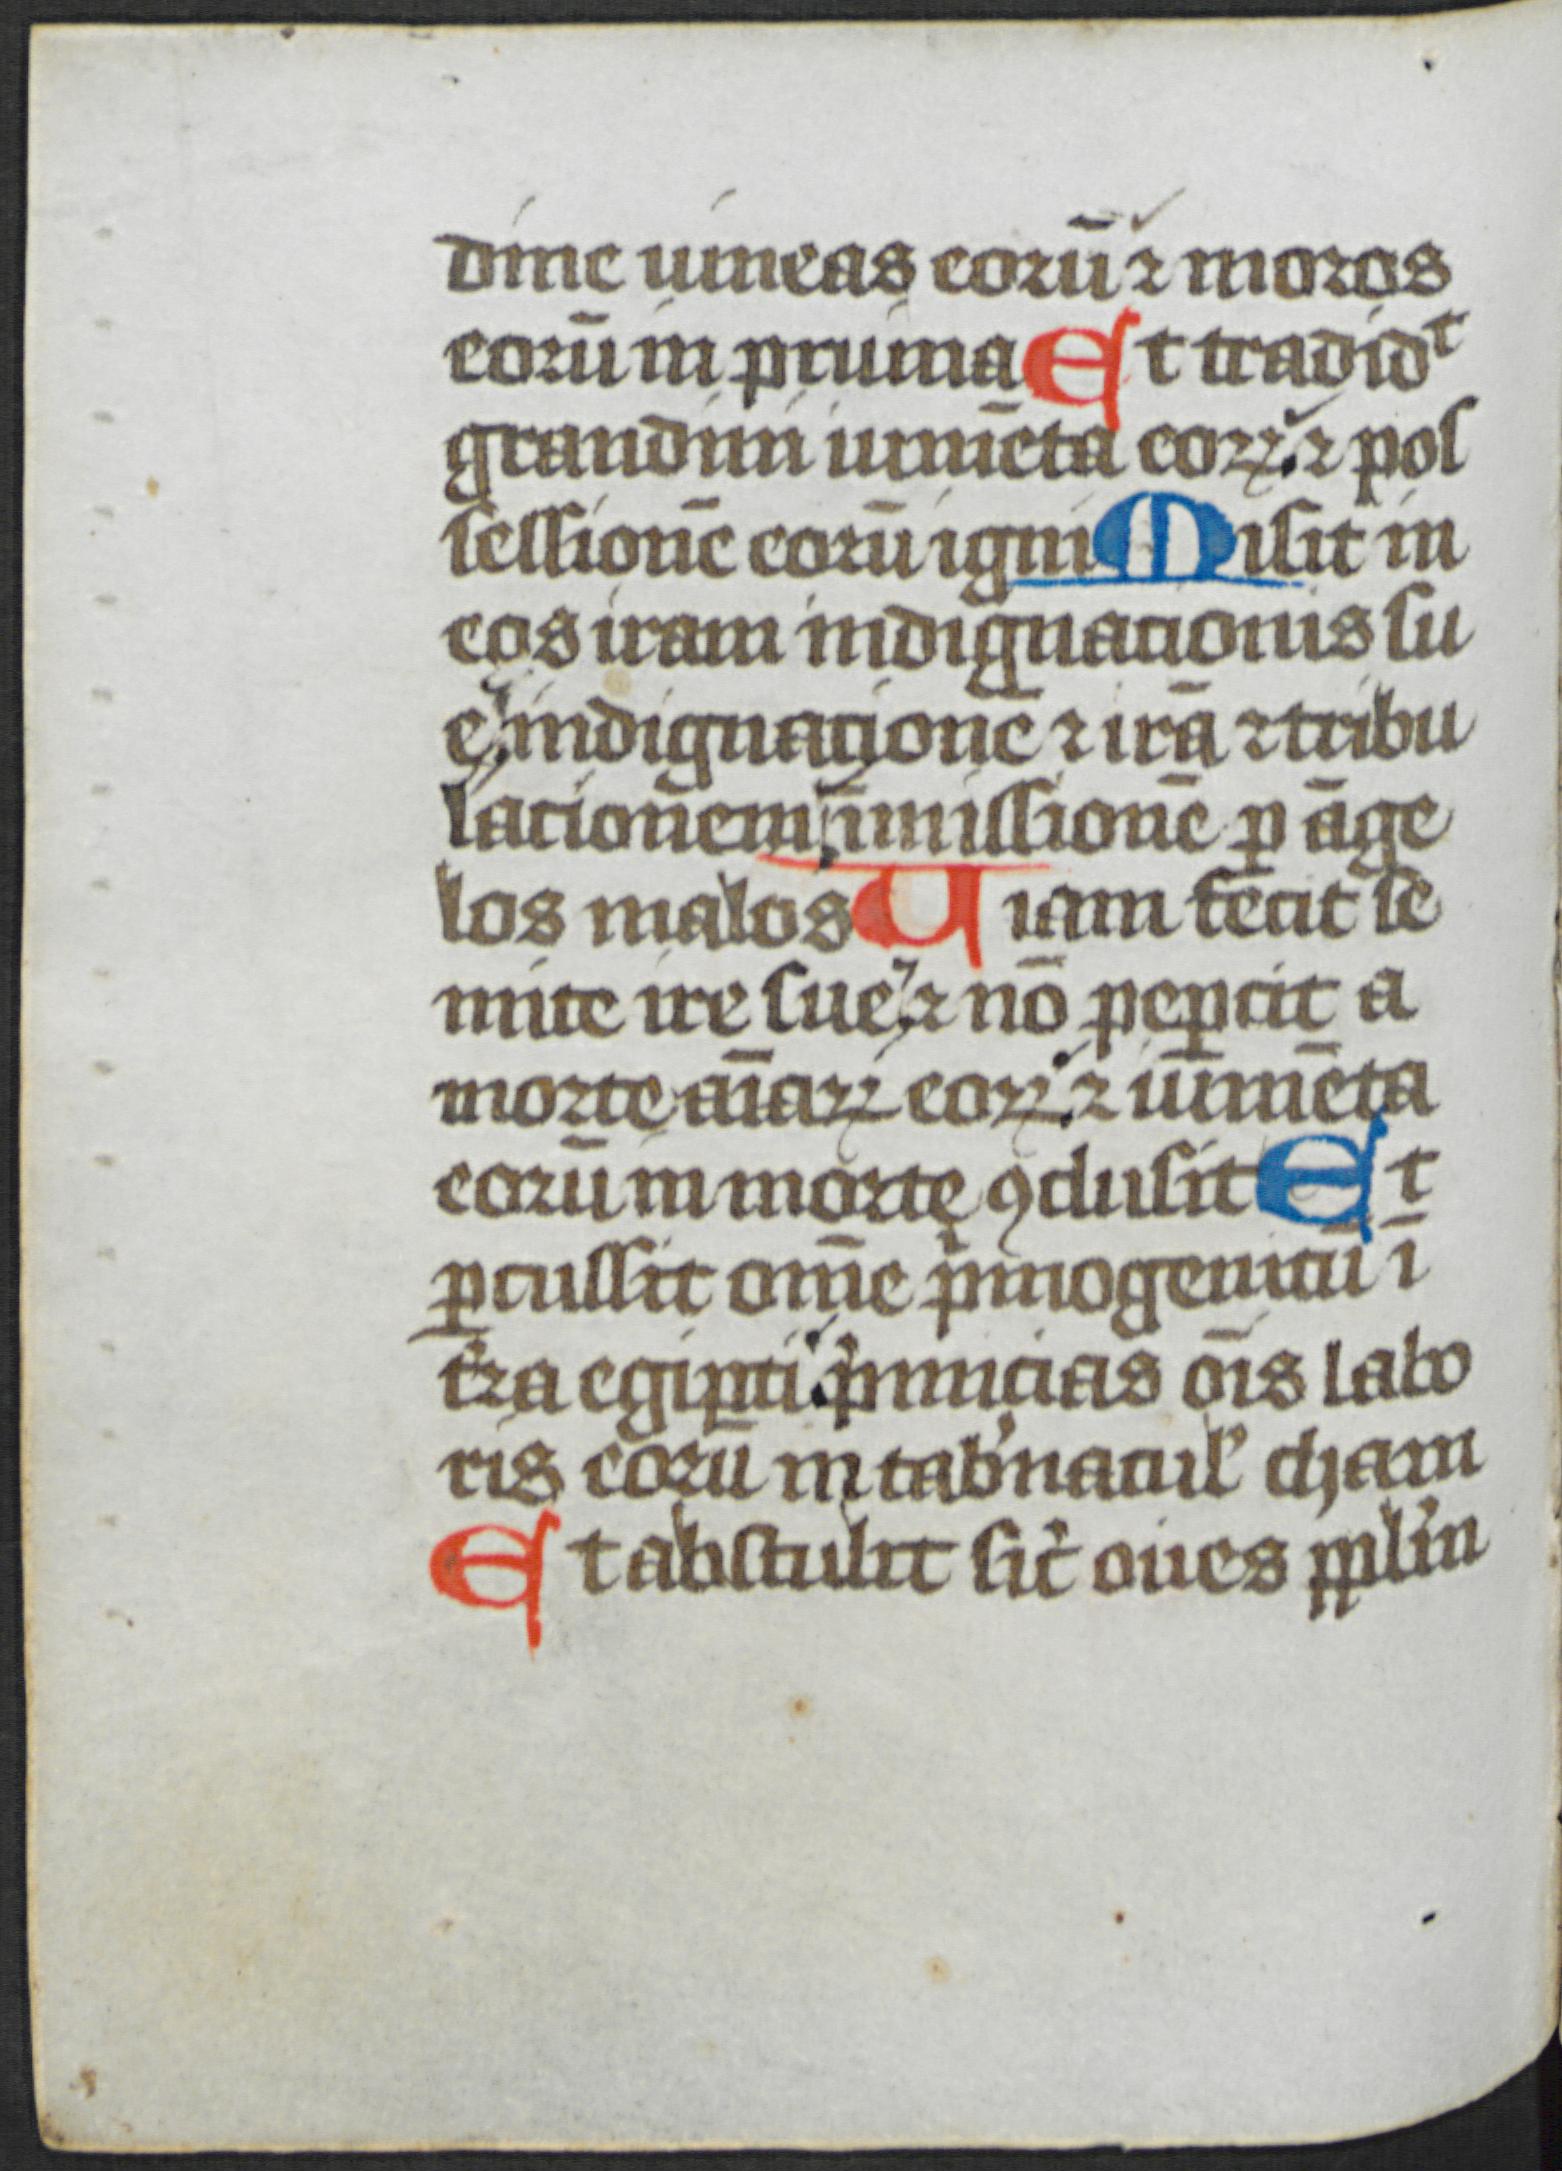 dine uineas eorū ⁊ moros
eorū in pruina Et tradidᵗ
grandini iumēta eoꝝ. ⁊ pos
sessionē eorū igni Misit in
eos iram indignacionis su
e. indignacionē ⁊ irā ⁊ tribu
lacionem. īmissionē ꝑ āge
los malos Uiam fecit se
mite ire sue. ⁊ nō pepcit a
morte aīaꝝ eoꝝ. ⁊ iumēta
eorū in morte ꝯclusit Et
ꝑcussit om̄e pͥmogenitū ī
tr̄a egipti. pͥmicias oīs labo
ris eorū in tab̾nacul̾ cham
Et abstulit sic̾ oues ppl̾m